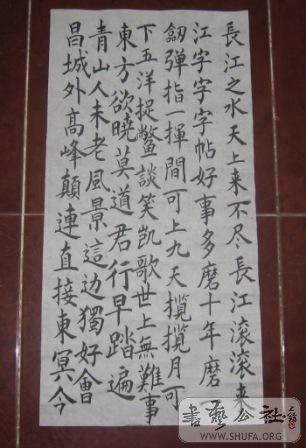 長江之水天上来不尽長江滚滚来公
江字字字帖好事多磨十年磨一
劒弹指一揮間可上九天攬攬月可
下五洋捉鳖談笑凯歌世上無難事
東方欲曉莫道君行早踏遍
青山人未老風景這边獨好會
昌城外高峰顛連直接東冥今
書艺公社
WWW.SHUFA.ORG